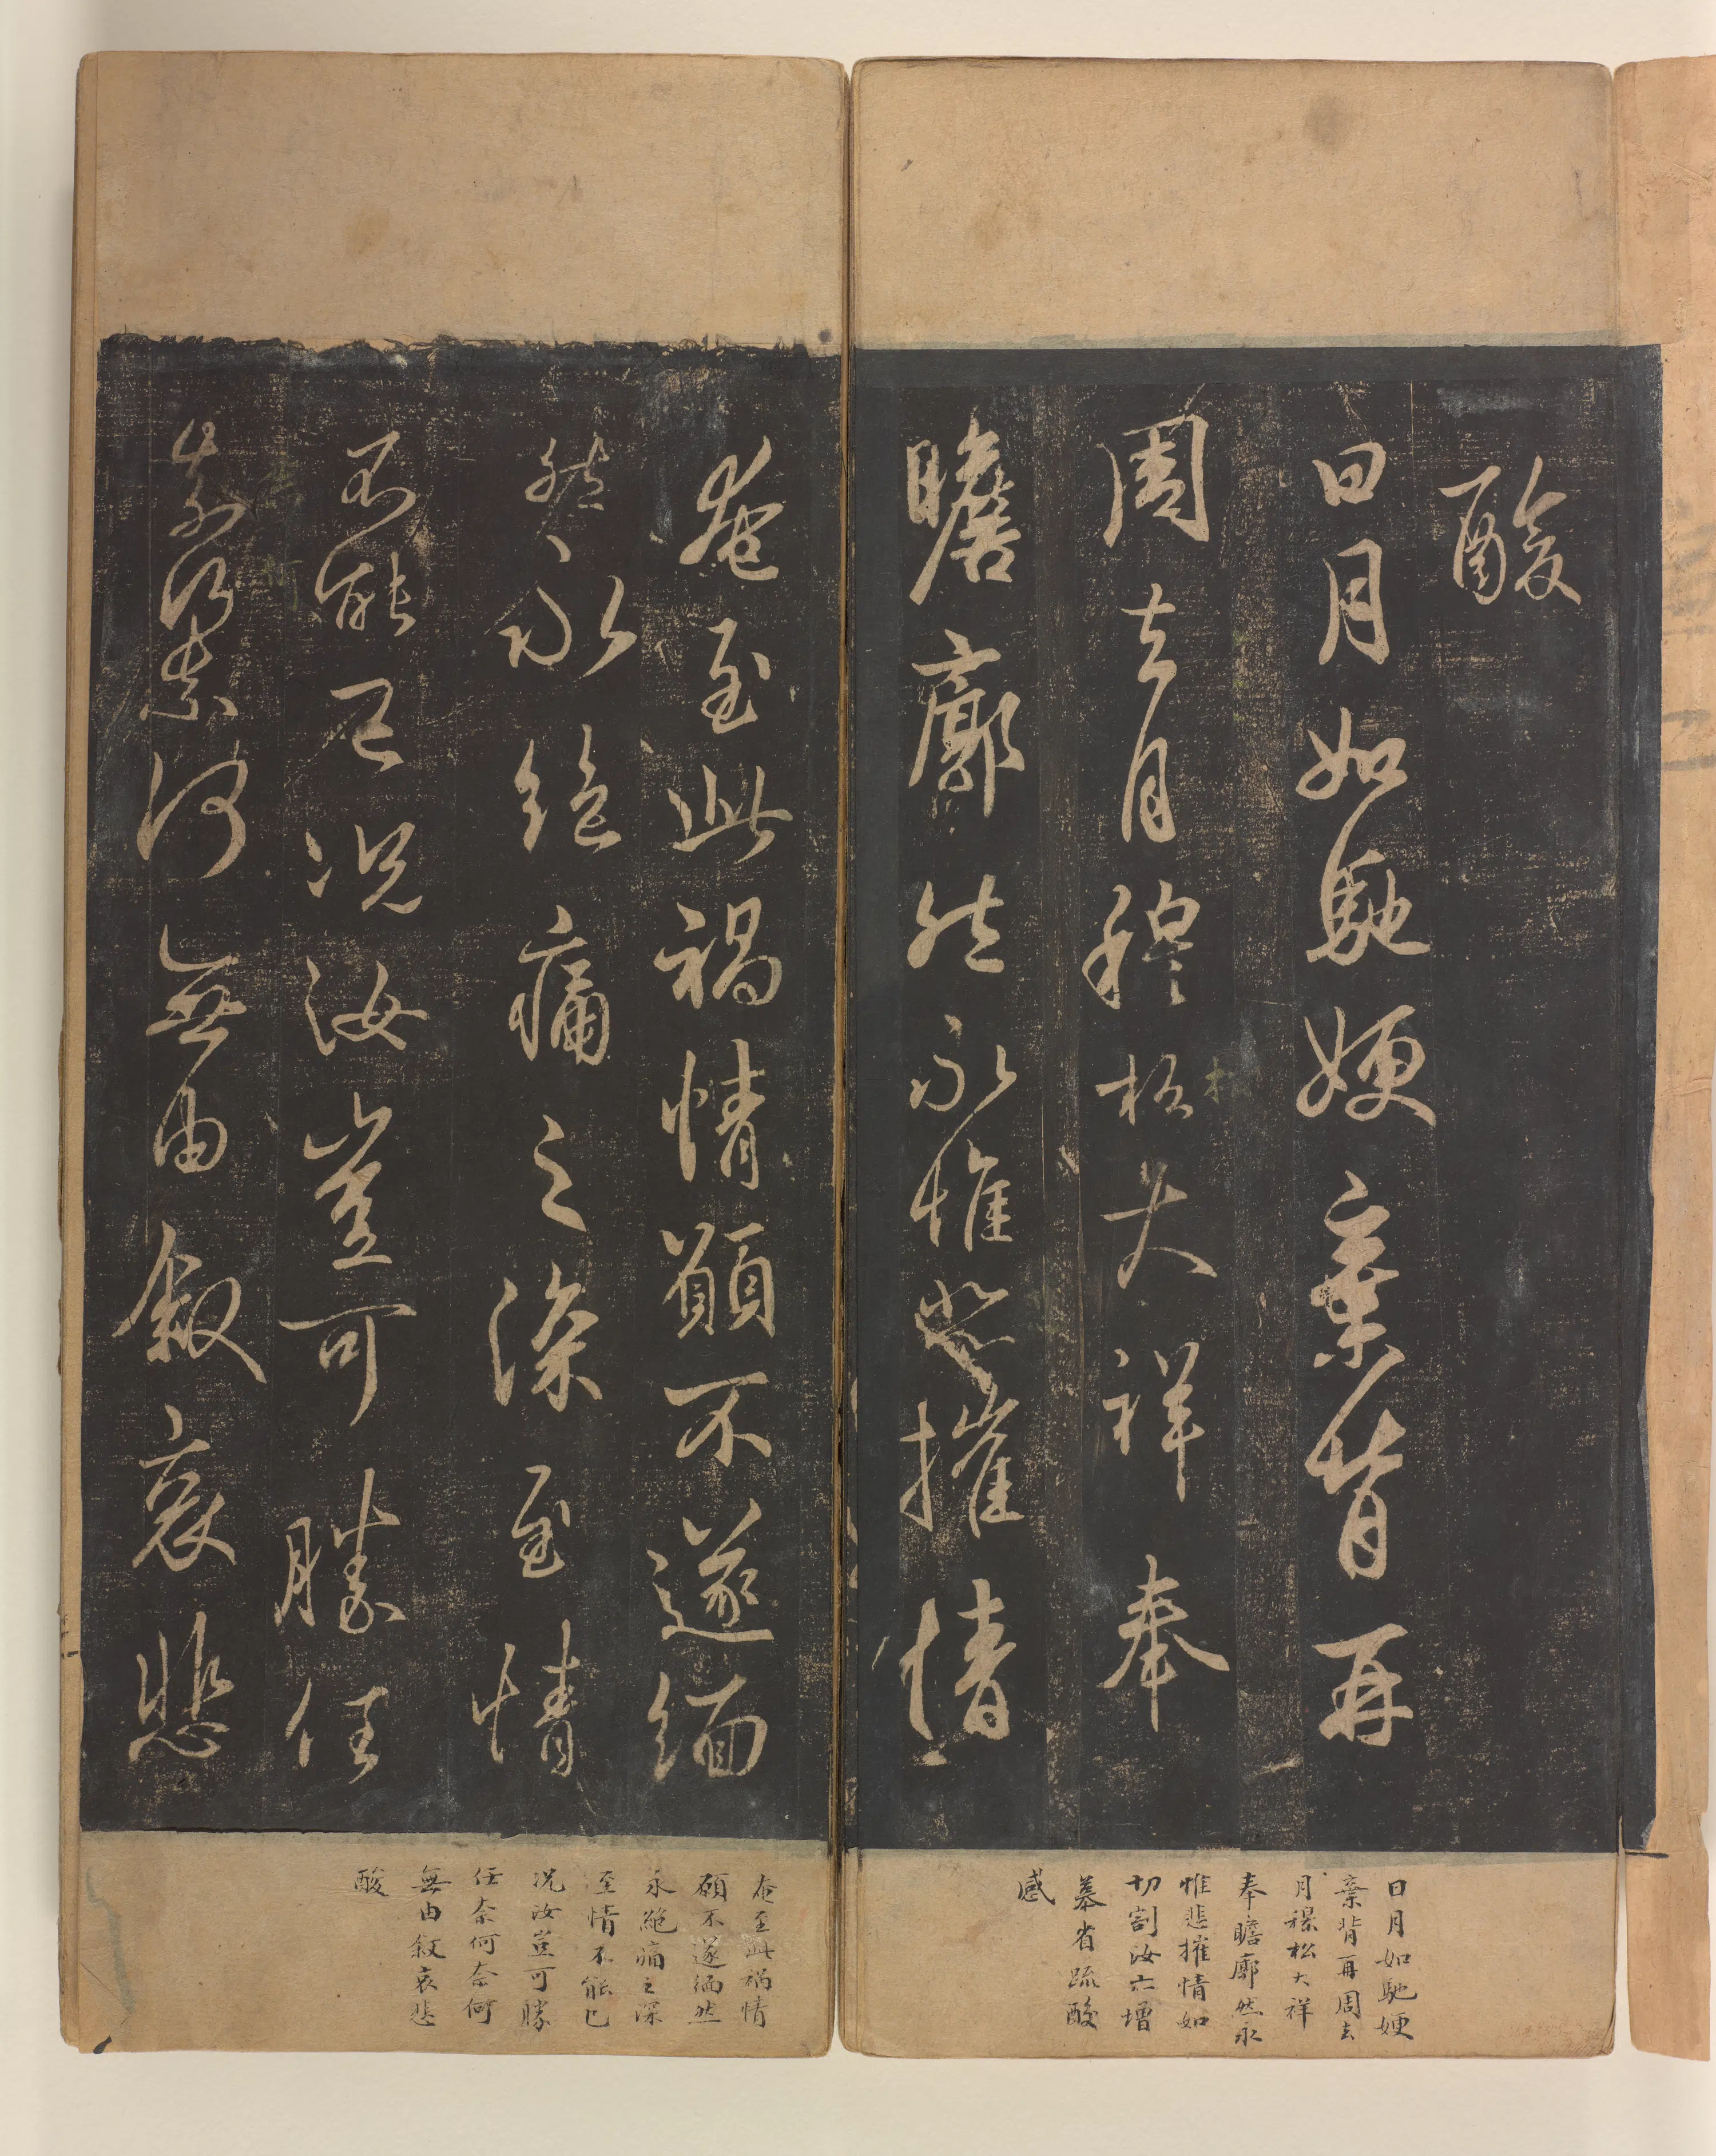 酸
日月如馳㛐棄背再
周去月穆松大祥奉
瞻廓然永惟悲摧情
奄至此禍情願不遂緬
然永絕痛之深至情
不能已况汝豈可勝任
奈何奈何無由叙哀悲
日月如馳㛐
棄背再周去
月穆松大祥
奉瞻廓然永
惟悲摧情如
切割汝亦增
慕省疏酸
感
奄至此禍情
願不遂緬然
永絕痛之深
至情不能已
况汝豈可勝
任奈何奈何
無由叙哀悲
酸